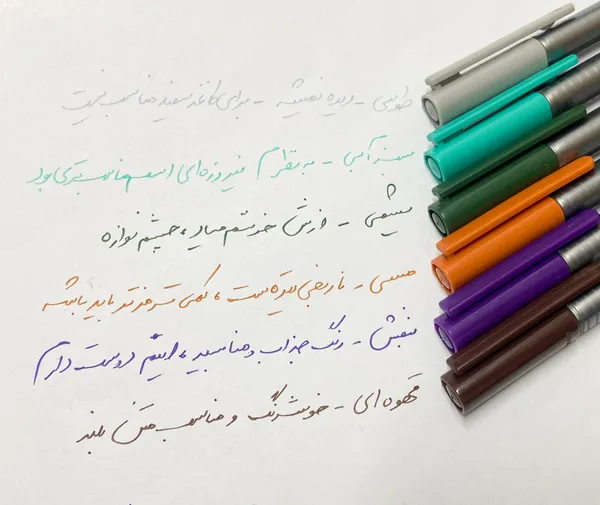 طوسی - دیده نمیشه - برای کاغذ سفید مناسب نیست
سبزآبی - به نظرم فیروزه‌ای اسم مناسب‌تری بود
یشمی - ازش خوشم میاد، چشم نوازه
مسی - نارنجی نیست، کمی قرمزتر باید باشه
بنفش - رنگ جذاب و مناسبیه، اینم دوست دارم
قهوه‌ای - خوشرنگ و مناسب متن بلند